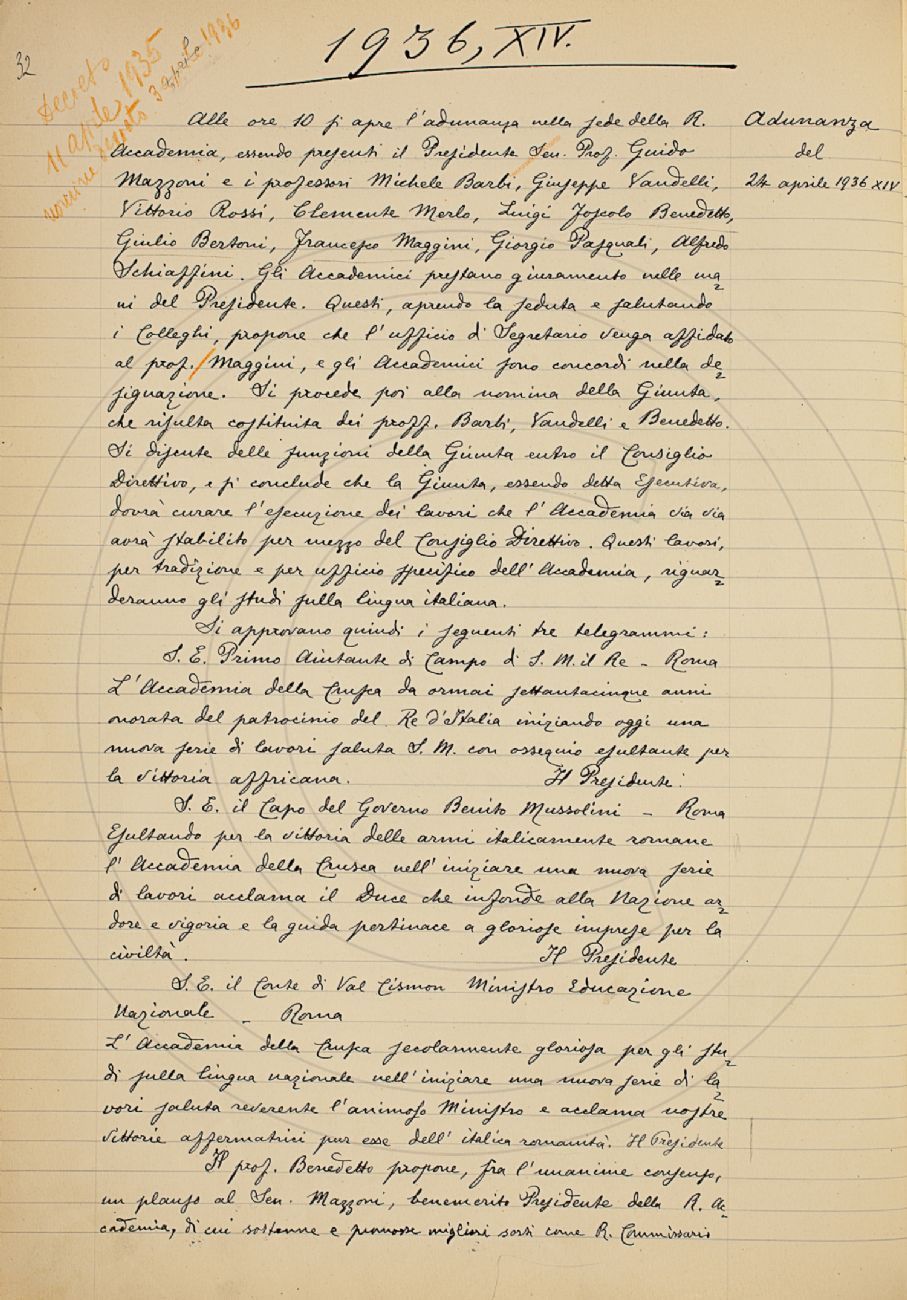 32
Decreto
11 aprile 1935
nomine decreto 3 aprile 1936
1936, XIV.
Adunanza
del
24 aprile 1936 XIV
Alle ore 10 si apre l'adunanza nella sede della R.
Accademia, essendo presenti il Presidente Sen. Prof. Guido
Mazzoni e i professori Michele Barbi, Giuseppe Vandelli,
Vittorio Rossi, Clemente Merlo, Luigi Foscolo Benedetto,
Giulio Bertoni, Francesco Maggini, Giorgio Pasquali, Alfredo
Schiaffini. Gli Accademici prestano giuramento nelle ma=
ni del Presidente. Questi, aprendo la seduta e salutando
i Colleghi, propone che l'ufficio di Segretario venga affidato
al prof. Maggini, e gli Accademici sono concordi nella de=
signazione. Si procede poi alla nomina della Giunta,
che risulta costituita dei proff. Barbi, Vandelli e Benedetto.
Si discute delle funzioni della Giunta entro il Consiglio
Direttivo, e si conclude che la Giunta, essendo detta Esecutiva,
dovrà curare l'esecuzione dei lavori che l'Accademia via via
avrà stabilito per mezzo del Consiglio Direttivo. Questi lavori,
per tradizione e per ufficio specifico dell'Accademia, riguar=
deranno gli studi sulla lingua italiana.
Si approvano quindi i seguenti tre telegrammi:
S. E. Primo Aiutante di Campo di S. M. il Re - Roma
L'Accademia della Crusca da ormai settantacinque anni
onorata del patrocinio del Re d'Italia iniziando oggi una
nuova serie di lavori saluta S. M. con ossequio esultante per
la vittoria affricana. Il Presidente.
S. E. il Capo del Governo Benito Mussolini - Roma
Esultando per la vittoria delle armi italicamente romane
l'Accademia della Crusca nell'iniziare una nuova serie
di lavori acclama il Duce che infonde alla Nazione ar=
dore e vigoria e la guida pertinace a gloriose imprese per la
civiltà. Il Presidente
S. E. il Conte di Val Cismon Ministro Educazione
Nazionale - Roma
L'Accademia della Crusca secolarmente gloriosa per gli stu=
di sulla lingua nazionale nell'iniziare una nuova serie di la=
vori saluta reverente l'animoso Ministro e acclama nostre
vittorie affermatrici pur esse dell'italica romanità. Il Presidente
Il prof. Benedetto propone, fra l'unanime consenso,
un plauso al Sen. Mazzoni, benemerito Presidente della R. Ac=
cademia, di cui sostenne e promosse migliori sorti come R. Commissario